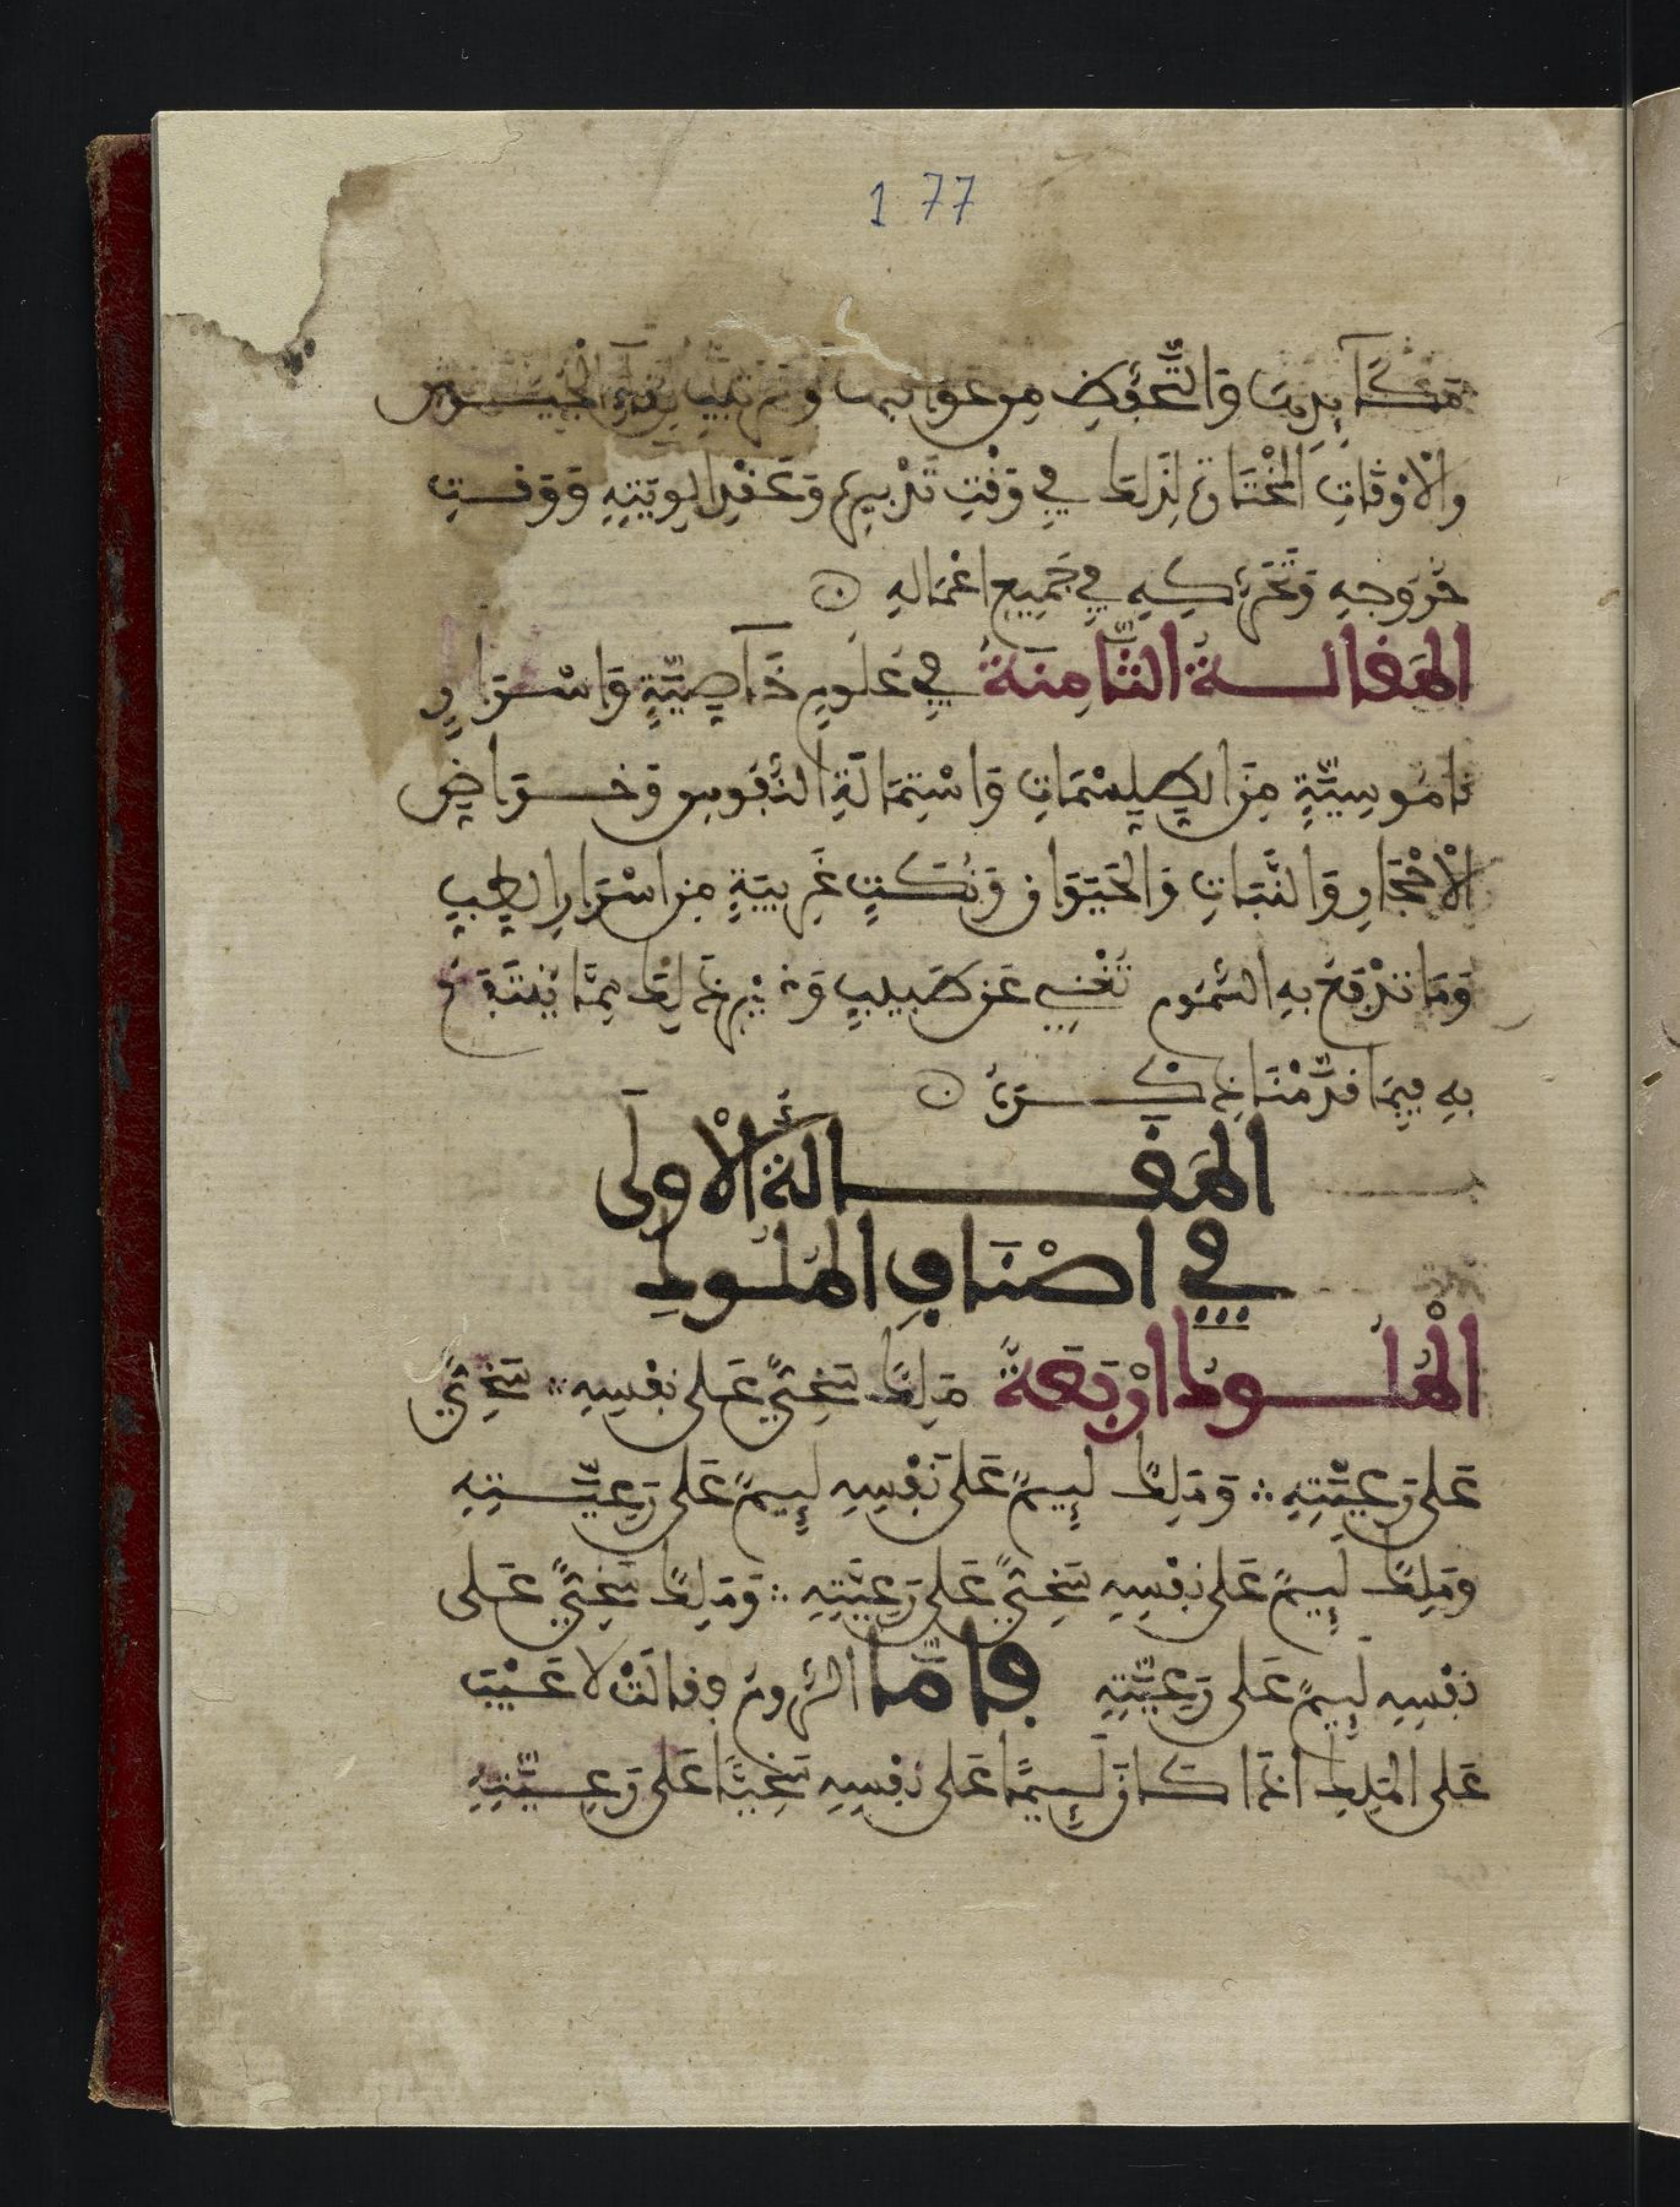 177
مَكَآيِدِهَا وَالتَّحَفُّظِ مِن عَوَاقِبِهَا وَتَرتِيبِ لِقَآءِ الْجُيُوشِ
وَالْأَوْقَاتِ الْمُخْتَارَةِ لِذَلِكَ فِي وَقْتِ تَدْبِيرِهِ وَعَقْدِ أَلْوِيَتِهِ وَوَقْتِ
خُرُوجِهِ وَتَحَرُّكِهِ فِي جَمِيعِ أعْمَالِهِ
المَقَالَةُ الثَّامِنَةُ فِي عُلُومٍ خَآصِيَّةٍ وَأَسْرَارٍ
نَامُوسِيَّةٍ مِنَ الطِّلِسْمَاتِ وَاسْتِمَالَةِ النُّفُوسِ وَخَوَاصِّ
الْأَحْجَارِ وَالنَّبَاتِ وَالحَيَوَانِ وَنُكَتٍ غَرِيبَةٍ مِن أسْرَارِ الطِّبِّ
وَمَا تَدْفَعُ بِهِ السُّمُومَ تُغْنِي عَن طَبِيبٍ وَغَيْرِ ذَلِكَ مِمَّا يُنْتَفَعُ
بِهِ فِيمَا قَدَّمْنَا ذِكْرَهُ
المَقَالَةُ الْأُولَى
فِي أَصْنَافِ المُلُوكِ
الْمُلُوكُ أَرْبَعَةٌ مَلِكٌ سَخِيٌّ عَلَى نَفْسِهِ سَخِيٌّ
عَلَى رَعِيَّتِهِ وَمَلِكٌ لَئِيمٌ عَلَى نَفْسِهِ لَئِيمٌ عَلَى رَعِيَّتِهِ
وَمَلِكٌ لَئِيمٌ عَلَى نَفْسِهِ سَخِيٌّ عَلَى رَعِيَّتِهِ وَمَلِكٌ سَخِيٌّ عَلَى
نَفْسِهِ لَئِيمٌ عَلَى رَعِيَّتِهِ فَأَمَّا الرُّومُ فَقَالَتْ لَا عَيْبَ
عَلَى المَلِكِ إذَا كَانَ لَئِيمًا عَلَى نَفْسِهِ سَخِيًّا عَلَى رَعِيَّتِهِ